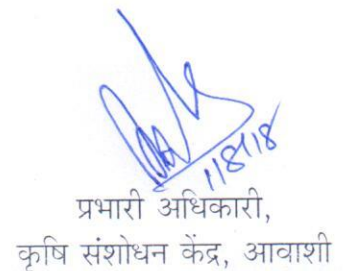 1/8/18
प्रभारी अधिकारी,
कृषि संशोधन केंद्र, आवाशी